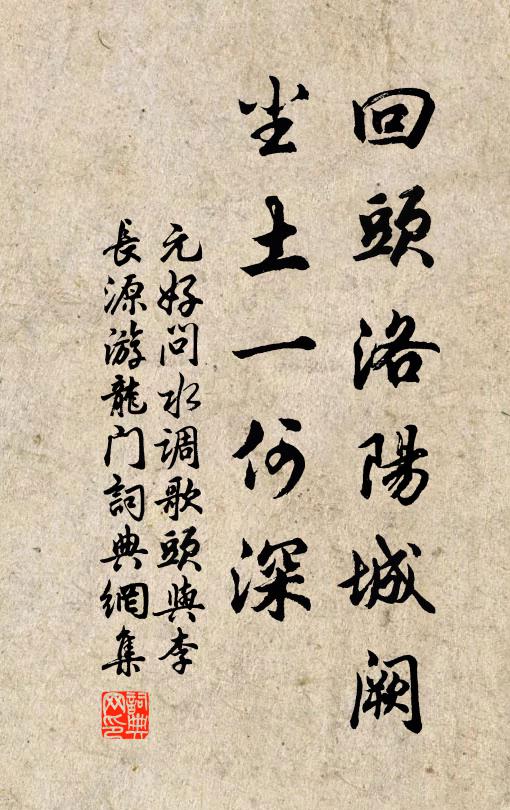 回頭洛陽城闕
尘土一何深
元好问水调歌頭與李
長源游龍门詞典網集
詞典网印